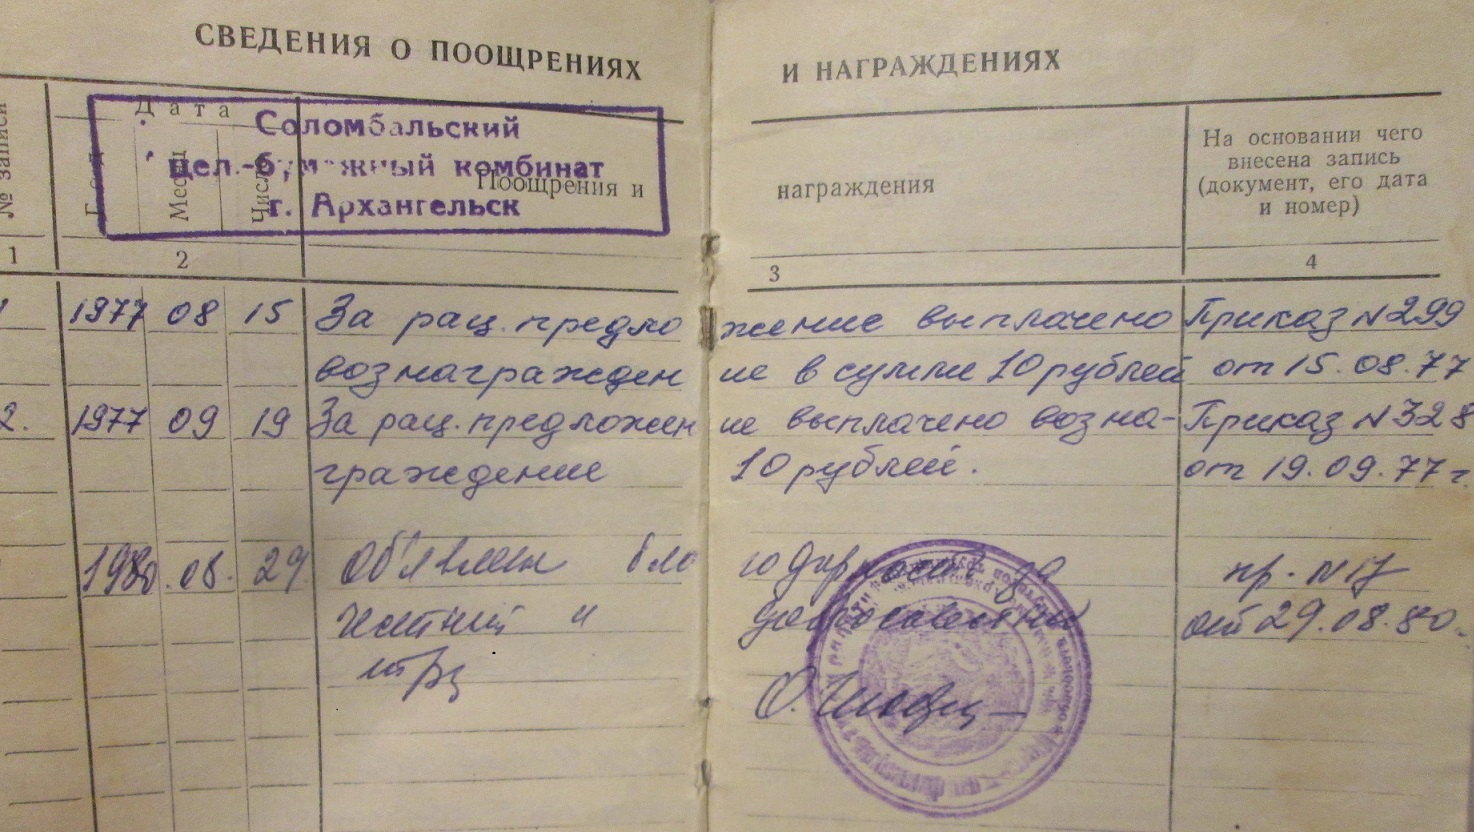 СВЕДЕНИЯ О ПООЩРЕНИЯХ И НАГРАЖДЕНИЯХ
№ записи
Дата
Год
Месяц
Число
Соломбальский
цел.-бумажный комбинат
г. Архангельск
Поощрения и награждения
На основании чего
внесена запись
(документ, его дата
и номер)
1 2 3 4
1 1977 08 15 За рац. предложение выплачено Приказ №299
вознаграждение в сумме 10 рублей от 15.08.77
2. 1977 09 19 За рац. предложение выплачено возна- Приказ №328
граждение 10 рублей. от 19.09.77 г.
1980. 08. 29. Объявлен благодарность за пр. №17
честный и добросовестный от 29.08.80.
труд